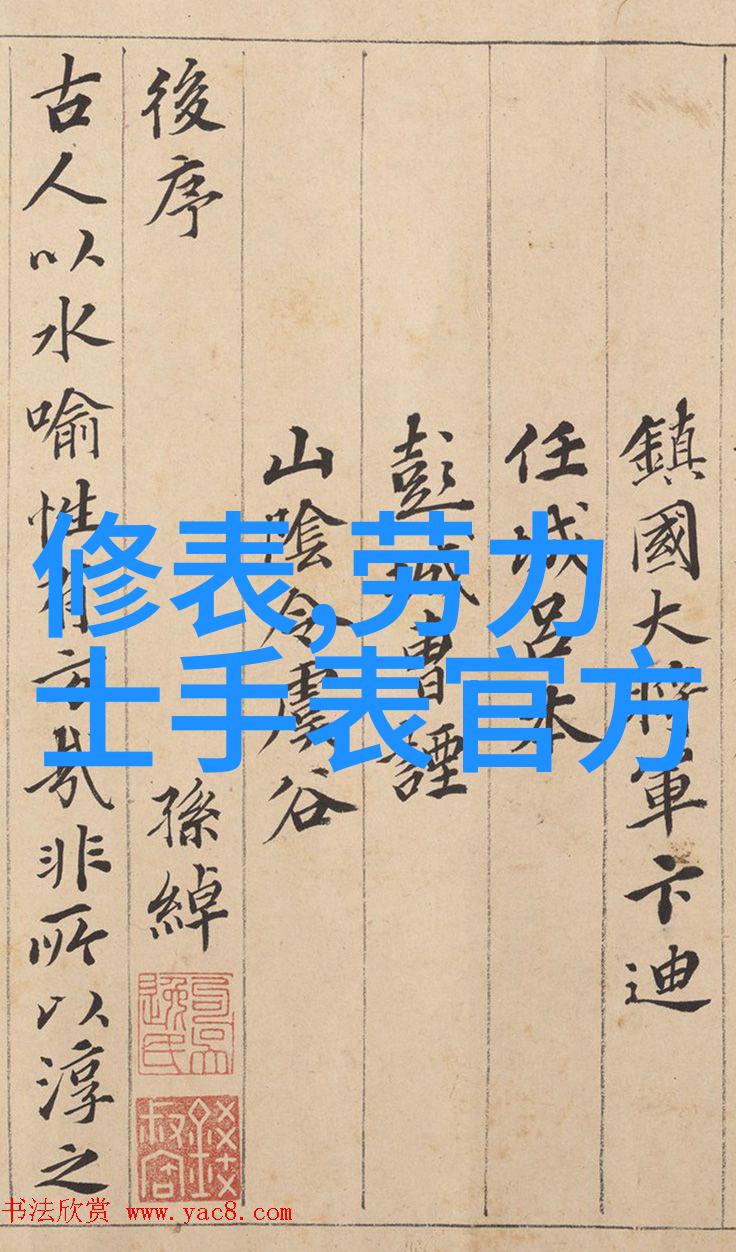 鎮國大將軍卞迪
任城呂本
彭城曹諲
山陰令虞谷
後序 孫綽
古人以水喻性有哉非所以淳之
修表,劳力
士手表官方
书法欣赏 www.yac8.com